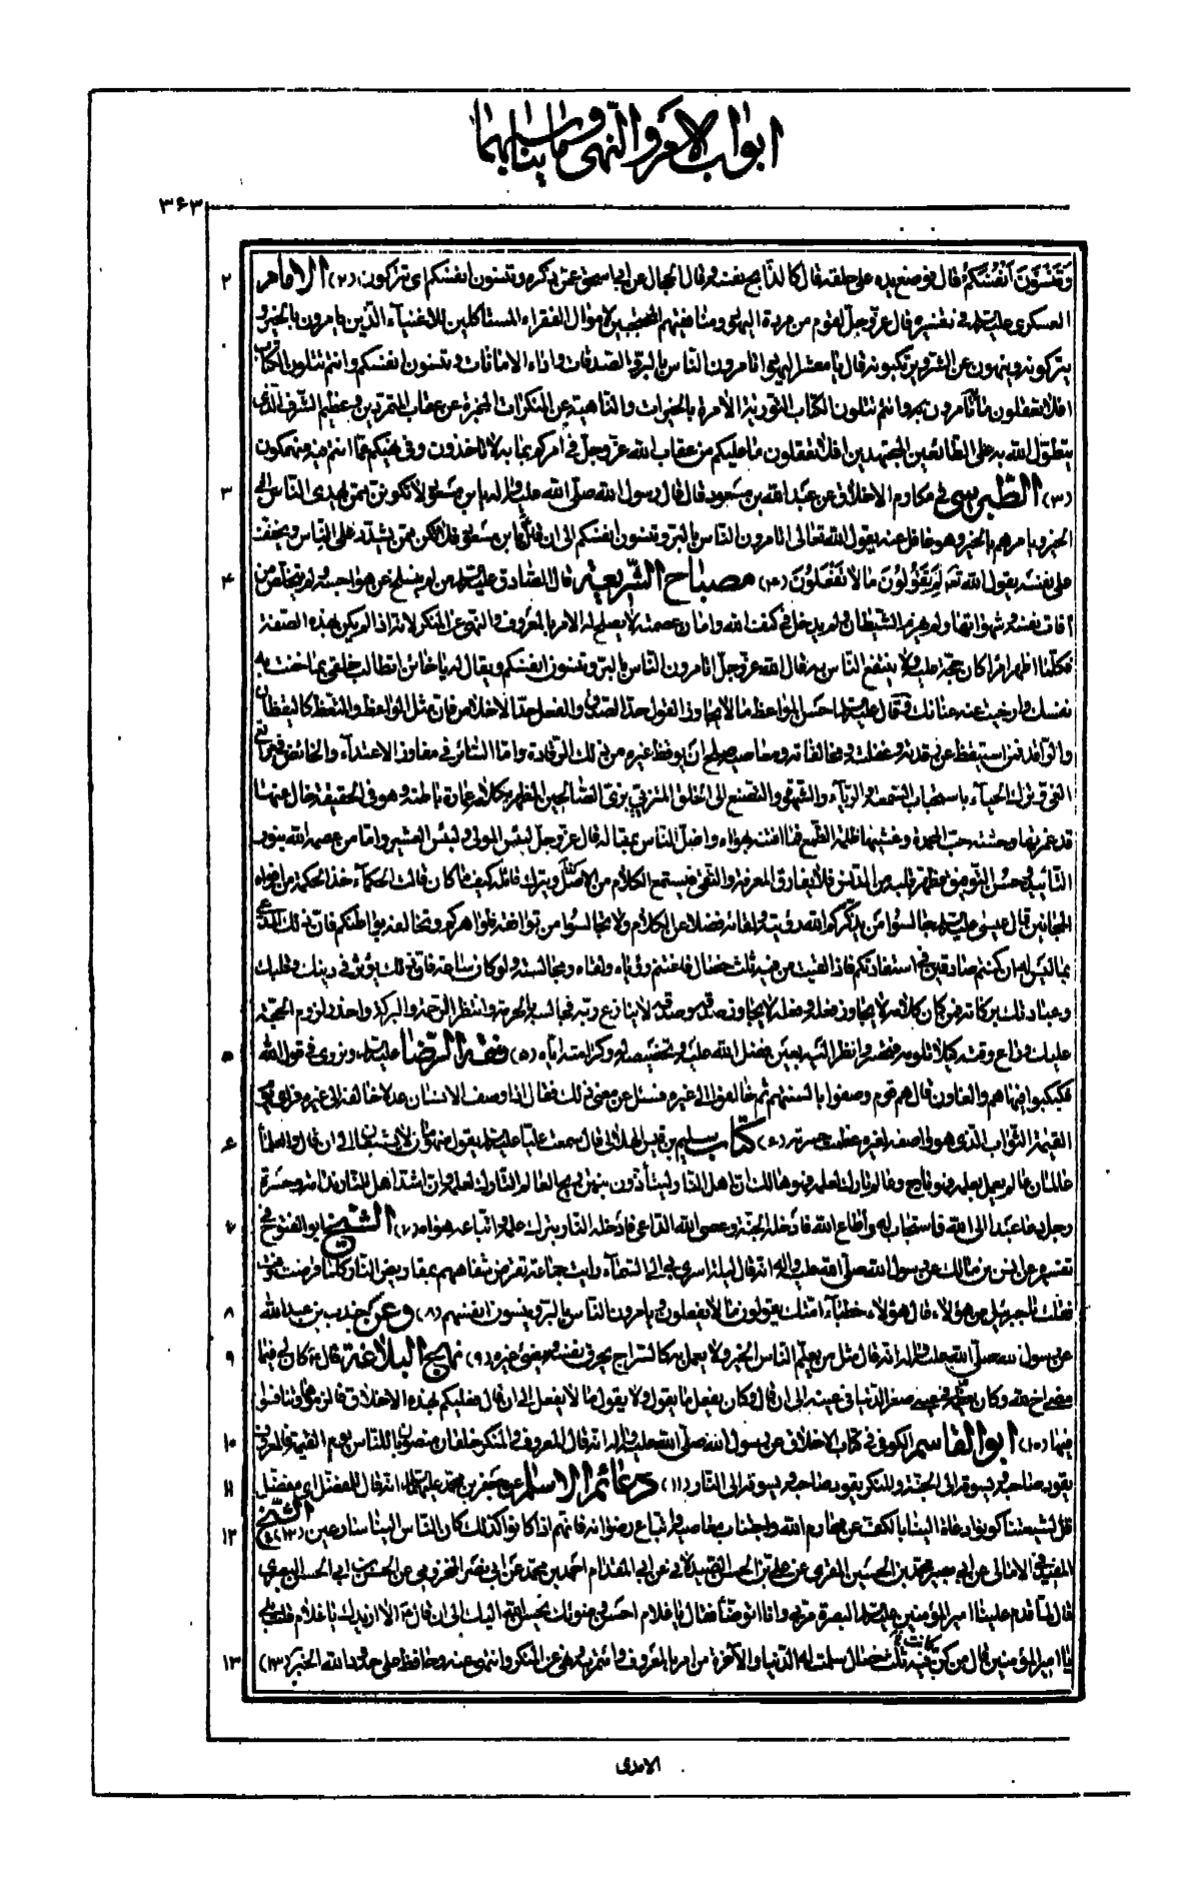 ابواب الامر و النهی و ما یناسبهما
۳۶۳
وَتَنْسَوْنَ أَنْفُسَكُمْ قال فوضع يده على حلقه قال كالذابح نفسه وقال الحجال عن ابي اسحق عمن ذكره وتنسون انفسكم اى تتركون (۲) الامام
العسكرى عليه السلام فى تفسيره قال عز وجل لقوم من مردة اليهود ومنافقيهم المحتجبين لاموال الفقراء المستاكلين للاغنياء الذين يامرون بالخير و
يتركونه وينهون عن الشر ويرتكبونه قال يا معشر اليهود اتامرون الناس بالبر بالصدقات واداء الامانات وتنسون انفسكم وانتم تتلون الكتاب
افلا تعقلون ما به تامرون وانتم تتلون الكتاب التورية الامرة بالخيرات والناهية عن المنكرات المخبرة عن عقاب المتمردين وعظيم الشرف الذى
يتطول الله به على الطائعين المجتهدين افلا تعقلون ما عليكم من عقاب الله عز وجل فى امركم بما به لا تاخذون وفى نهيكم عما انتم فيه منهمكون
(۳) الطبرسى فى مكارم الاخلاق عن عبد الله بن مسعود قال قال رسول الله صلى الله عليه واله يابن مسعود لا تكونن ممن يهدى الناس الى
الخير ويامرهم بالخير وهو غافل عنه يقول الله تعالى اتامرون الناس بالبر وتنسون انفسكم الى ان قال يا بن مسعود فلا تكن ممن يشدد على الناس ويخفف
على نفسه يقول الله تعالى لِمَ تَقُولُونَ مَا لَا تَفْعَلُونَ (۴) مصباح الشريعة قال الصادق عليه السلام من لم ينسلخ عن هواجسه ولم يتخلص من
افات نفسه وشهواتها ولم يهزم الشيطان ولم يدخل فى كنف الله وامان عصمته لا يصلح له الامر بالمعروف والنهى عن المنكر لانه اذا لم يكن بهذه الصفة
فكلما اظهر امرا كان حجة عليه ولا ينتفع الناس به قال الله عز وجل اتامرون الناس بالبر وتنسون انفسكم ويقال له يا خائن اتطالب خلقى بما خنت به
نفسك وارخيت عنه عنانك وقال عليه السلام احسن المواعظ ما لا يجاوز القول حد الصدق والفعل حد الاخلاص فان مثل الواعظ والمتعظ كاليقظان
والراقد فمن استيقظ عن رقدته وغفلته ومخالفاته ومعاصيه صلح ان يوقظ غيره من ذلك الرقاد واما السائر فى مفاوز الاعتداء والخائض فى مراتع
الغى وترك الحياء باستحباب السمعة والرياء والشهرة والتصنع الى الخلق المتزيى بزى الصالحين المظهر بكلامه عمارة باطنه وهو فى الحقيقة خال عنها
قد غمرتها وحشة حب المحمدة وغشيها ظلمة الطمع فما افتنه بهواه واضل الناس بمقاله قال عز وجل لبئس المولى ولبئس العشير واما من عصمه الله بنور
التاييد وحسن التوفيق وطهر قلبه من الدنس فلا يفارق المعرفة والتقى فيستمع الكلام من الاصل ويترك قائله كيف ما كان قالت الحكماء خذ الحكمة من افواه
المجانين قال عيسى عليه السلام جالسوا من يذكركم الله رؤيته ولقائه فضلا عن الكلام ولا تجالسوا من توافقه ظواهركم وتخالفه بواطنكم فان ذلك المدعى
بما ليس له ان كنتم صادقين فى استفادتكم فاذا لقيت من فيه ثلث خصال فاغتنم رؤياه ولقاه ومجالسته ولو كان ساعة فان ذلك يؤثر فى دينك وقلبك
وعبادتك بركاته فمن كان كلامه لا يجاوز فعله وفعله لا يجاوز صدقه وصدقه لا ينازع ربه فجالسه بالحرمة وانتظر الرحمة والبركة واحذر لزوم الحجة
عليك وراع وقته كيلا تلومه فتخسر وانظر اليه بعين فضل الله عليه وتخصيصه له وكرامته اياه (۵) فقه الرضا عليه السلام ونروى فى قول الله
فكبكبوا فيها هم والغاون قال هم قوم وصفوا بالسنتهم ثم خالفوا الى غيره فسئل عن معنى ذلك فقال اذا وصف الانسان عدلا خالفه الى غيره فراى يوم
القيمة الثواب الذى هو واصفه لغيره عظمت حسرته (۶) كتاب سليم بن قيس الهلالى قال سمعت عليا عليه السلام يقول منهومان لا يشبعان الى ان قال والعلماء
عالمان عالم يعمل بعلمه فهو ناج وعالم تارك لعلمه فهو هالك ان اهل النار ليتأذون بنتن ريح العالم التارك لعلمه وان اشد اهل النار ندامة وحسرة
رجل دعا عبدا الى الله فاستجاب له واطاع الله فادخله الجنة وعصى الله الداعى فادخله النار بترك علمه واتباعه هواه (۷) الشيخ ابو الفتوح فى
تفسيره عن انس بن مالك عن رسول الله صلى الله عليه واله انه قال ليلة اسرى بى الى السماء رايت جماعة تقرض شفاههم بمقاريض النار كلما قرضت وفت
فقلت لجبرئيل من هؤلاء قال هؤلاء خطباء امتك يقولون ما لا يفعلون ويامرون الناس بالبر وينسون انفسهم (۸) وعن جندب بن عبد الله
عن رسول الله صلى الله عليه واله انه قال مثل من يعلم الناس الخير ولا يعمل به كالسراج يحرق نفسه ويضىء غيره (۹) نهج البلاغة قال ع كان لى فيما
مضى اخ فى الله وكان يعظمه فى عينى صغر الدنيا فى عينه الى ان قال وكان يفعل ما يقول ولا يقول ما لا يفعل الى ان قال فعليكم بهذه الاخلاق فالزموها وتنافسوا
فيها (۱۰) ابو القاسم الكوفى فى كتاب الاخلاق عن رسول الله صلى الله عليه واله انه قال المعروف والمنكر خلقان منصوبان للناس يوم القيمة فالمعروف
يقود صاحبه ويسوقه الى الجنة والمنكر يقود صاحبه ويسوقه الى النار (۱۱) دعائم الاسلام عن جعفر بن محمد عليهما السلام انه قال للمفضل اى مفضل
قل لشيعتنا كونوا دعاة الينا بالكف عن محارم الله واجتناب معاصيه واتباع رضوانه فانهم اذا كانوا كذلك كان الناس الينا مسارعين (۱۲) الشيخ
المفيد فى الامالى عن ابى جعفر محمد بن الحسين المقرى عن على بن الحسن الصيدلانى عن ابى المقدام احمد بن محمد عن ابى نصر المخزومى عن الحسن بن ابى الحسن البصرى
قال لما قدم علينا امير المؤمنين عليه السلام البصرة مر بى وانا اتوضأ فقال يا غلام احسن وضوئك يحسن الله اليك الى ان قال ع الا ازيدك يا غلام قلت بلى
يا امير المؤمنين قال من كن فيه ثلث خصال سلمت له الدنيا والآخرة من امر بالمعروف وائتمر به ونهى عن المنكر وانتهى عنه وحافظ على حدود الله الخبر (۱۳)
۲
۳
۴
۵
۶
۷
۸
۹
۱۰
۱۱
۱۲
۱۳
الامدى